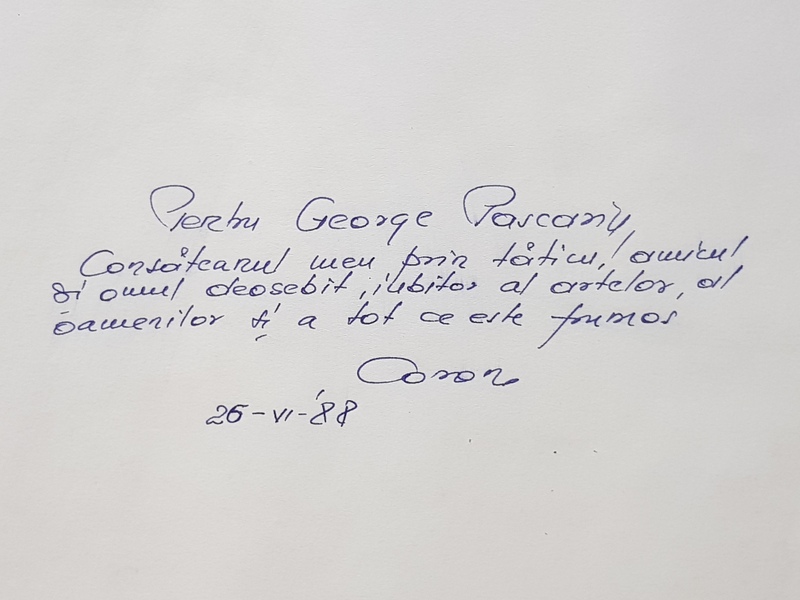 Pentru George Pascariu,
Consăteanul meu prin tăticu, amicul
și omul deosebit, iubitor al artelor, al
oamenilor și a tot ce este frumos
26-VI-'88